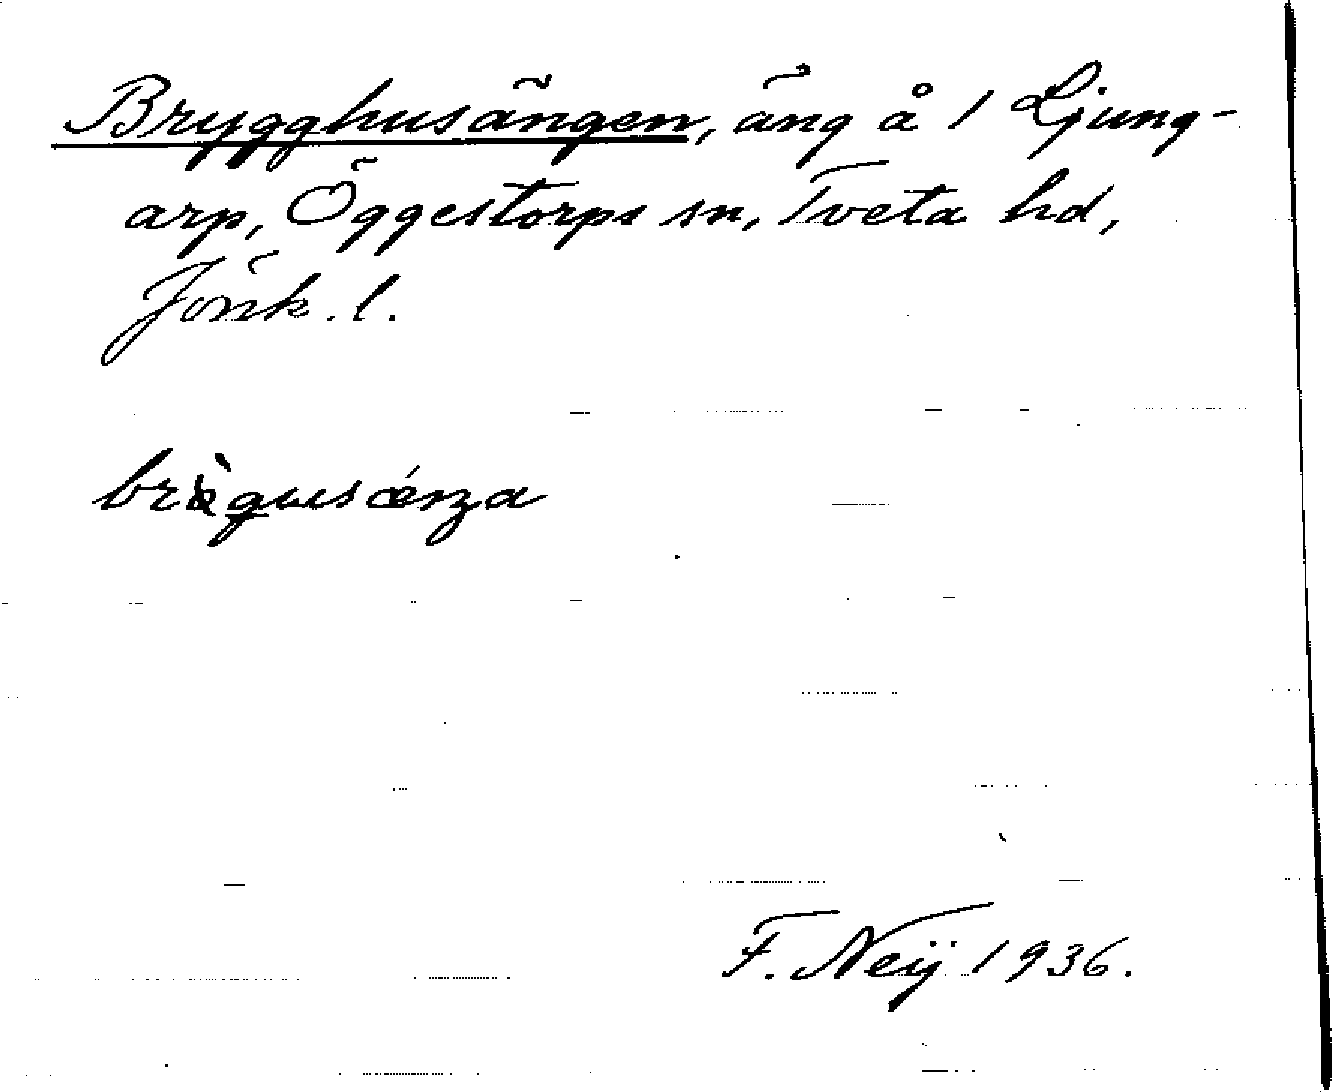 Brygghusängen, äng å 1 Ljung-
arp, Öggestorps sn, Tveta hd,
Jönk. l.
F. Neij 1936.